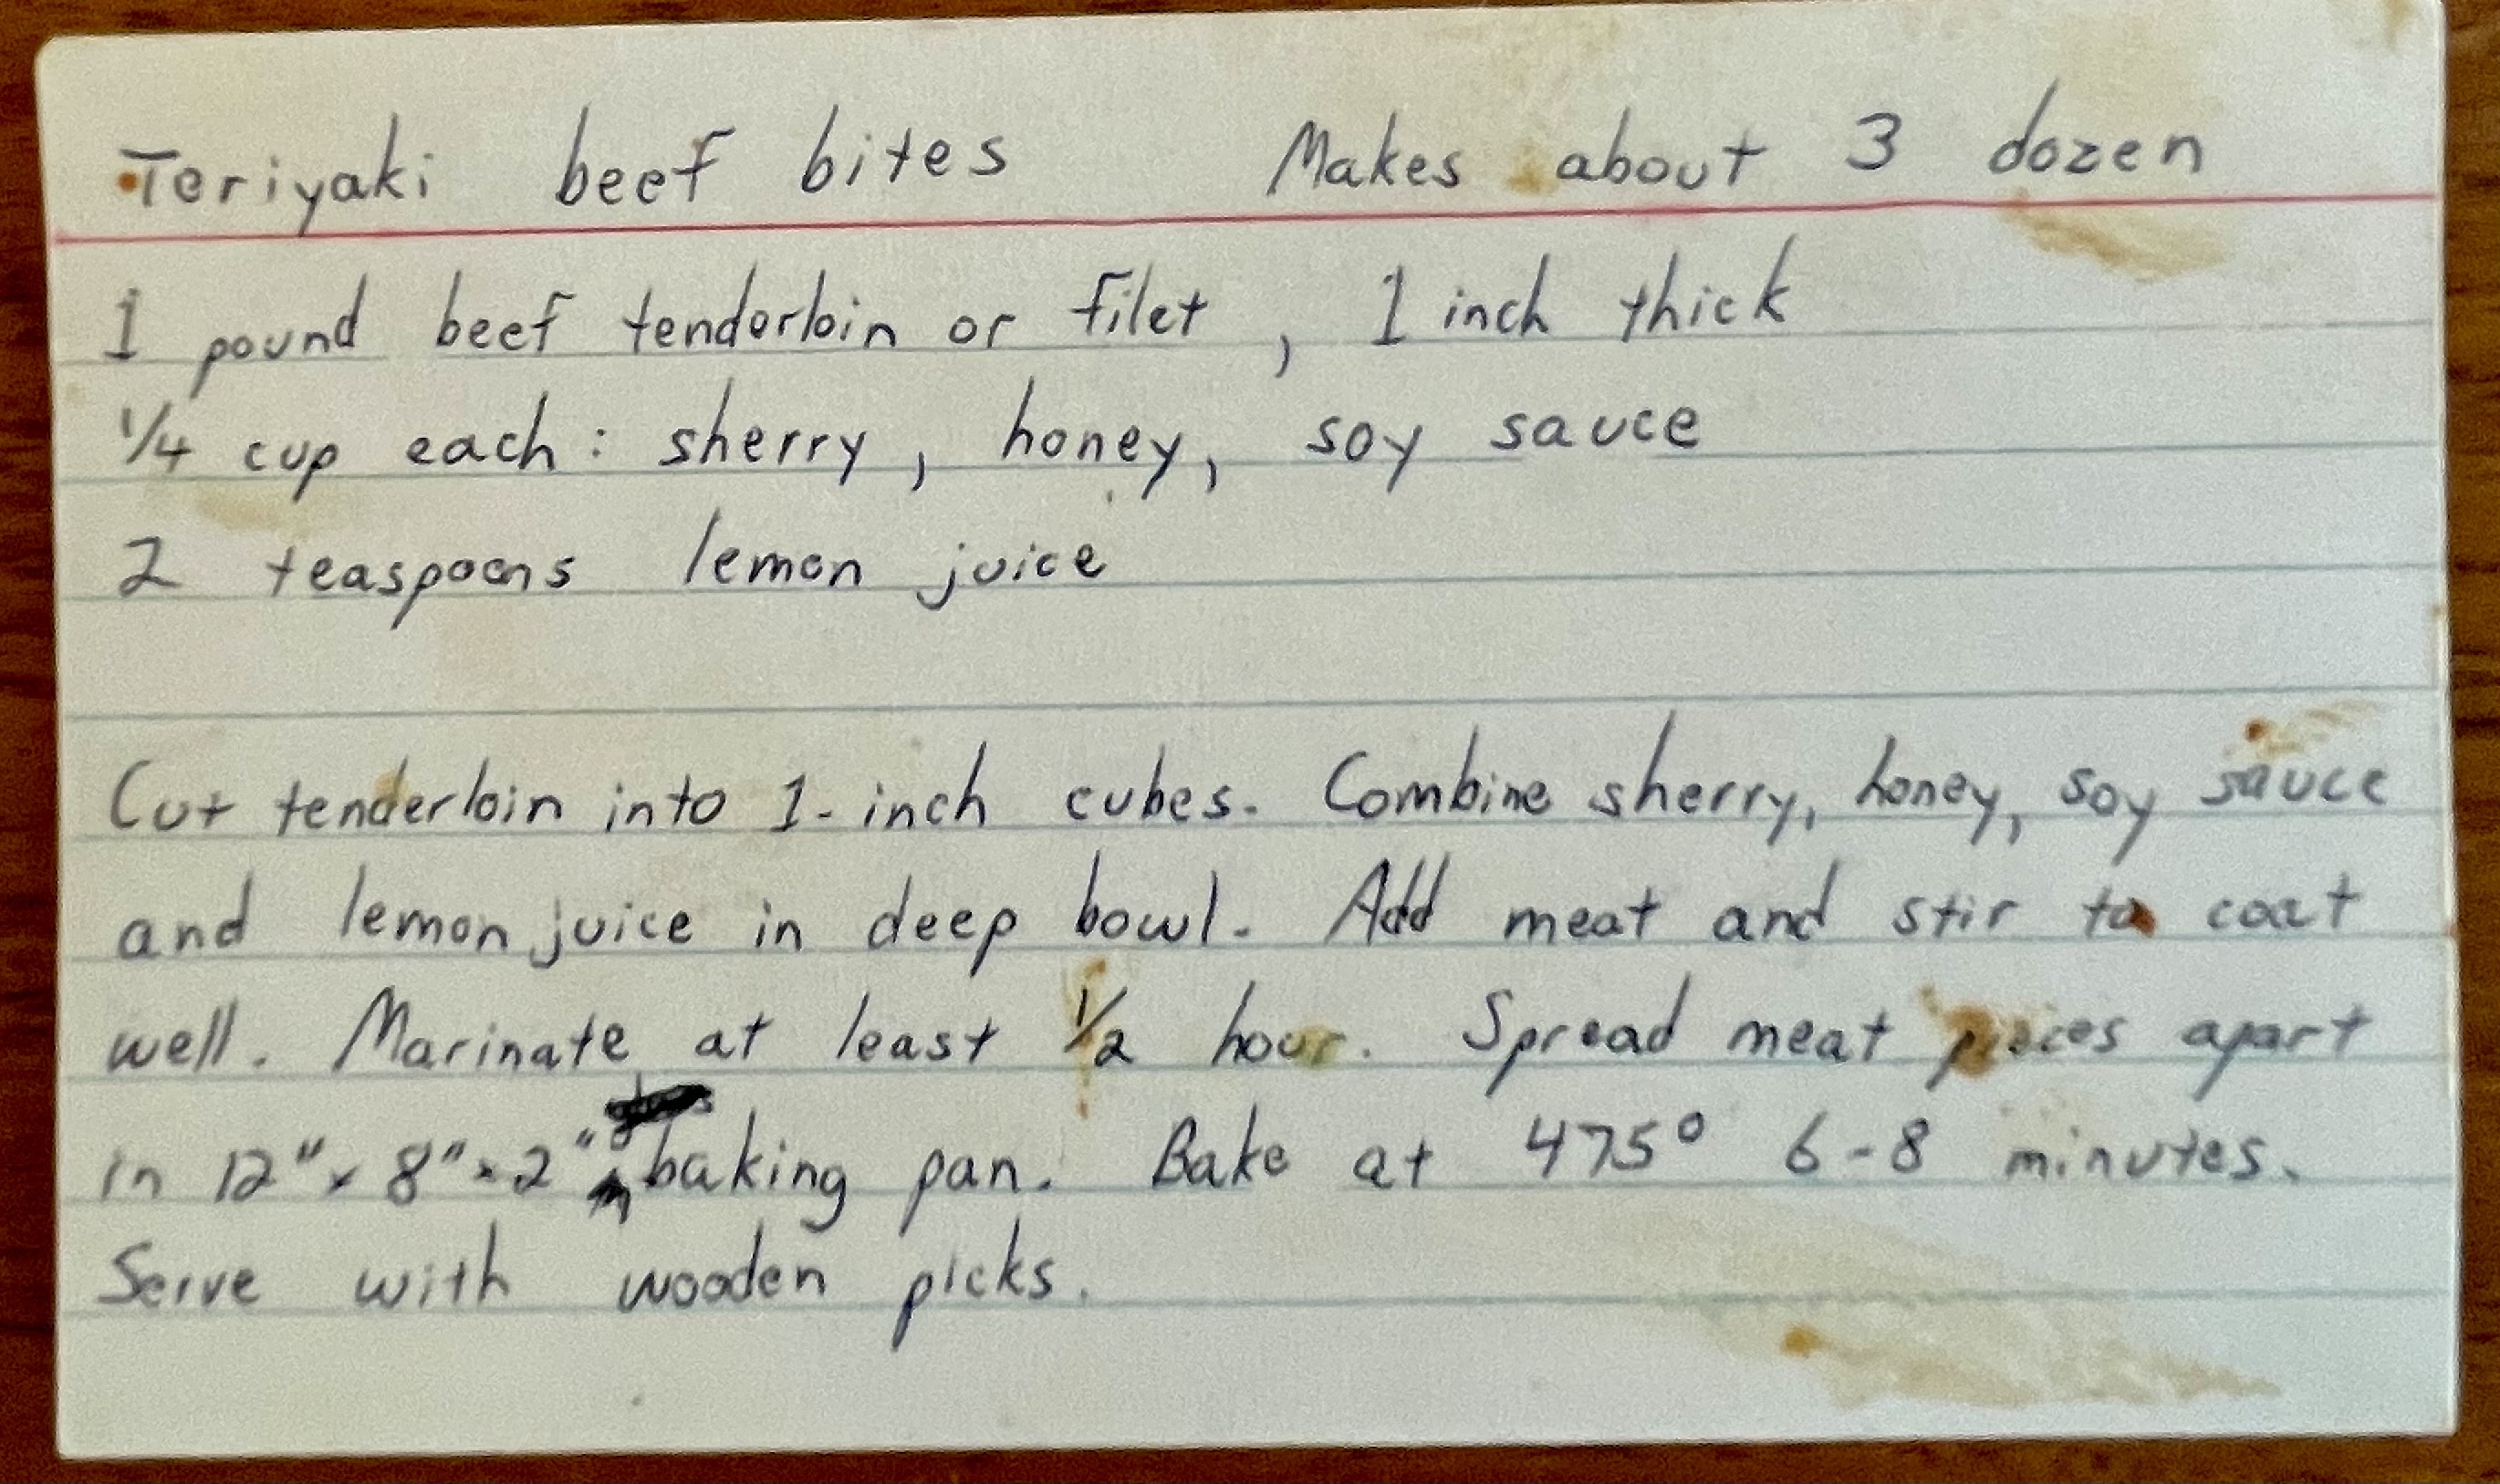 Teriyaki beef bites Makes about 3 dozen
1 pound beef tenderloin or filet, 1 inch thick
1/4 cup each: sherry, honey, soy sauce
2 teaspoons lemon juice
Cut tenderloin into 1-inch cubes. Combine sherry, honey, soy sauce
and lemon juice in deep bowl. Add meat and stir to coat
well. Marinate at least 1/2 hour. Spread meat pieces apart
in 12" x 8" x 2" baking pan. Bake at 475° 6-8 minutes.
Serve with wooden picks.